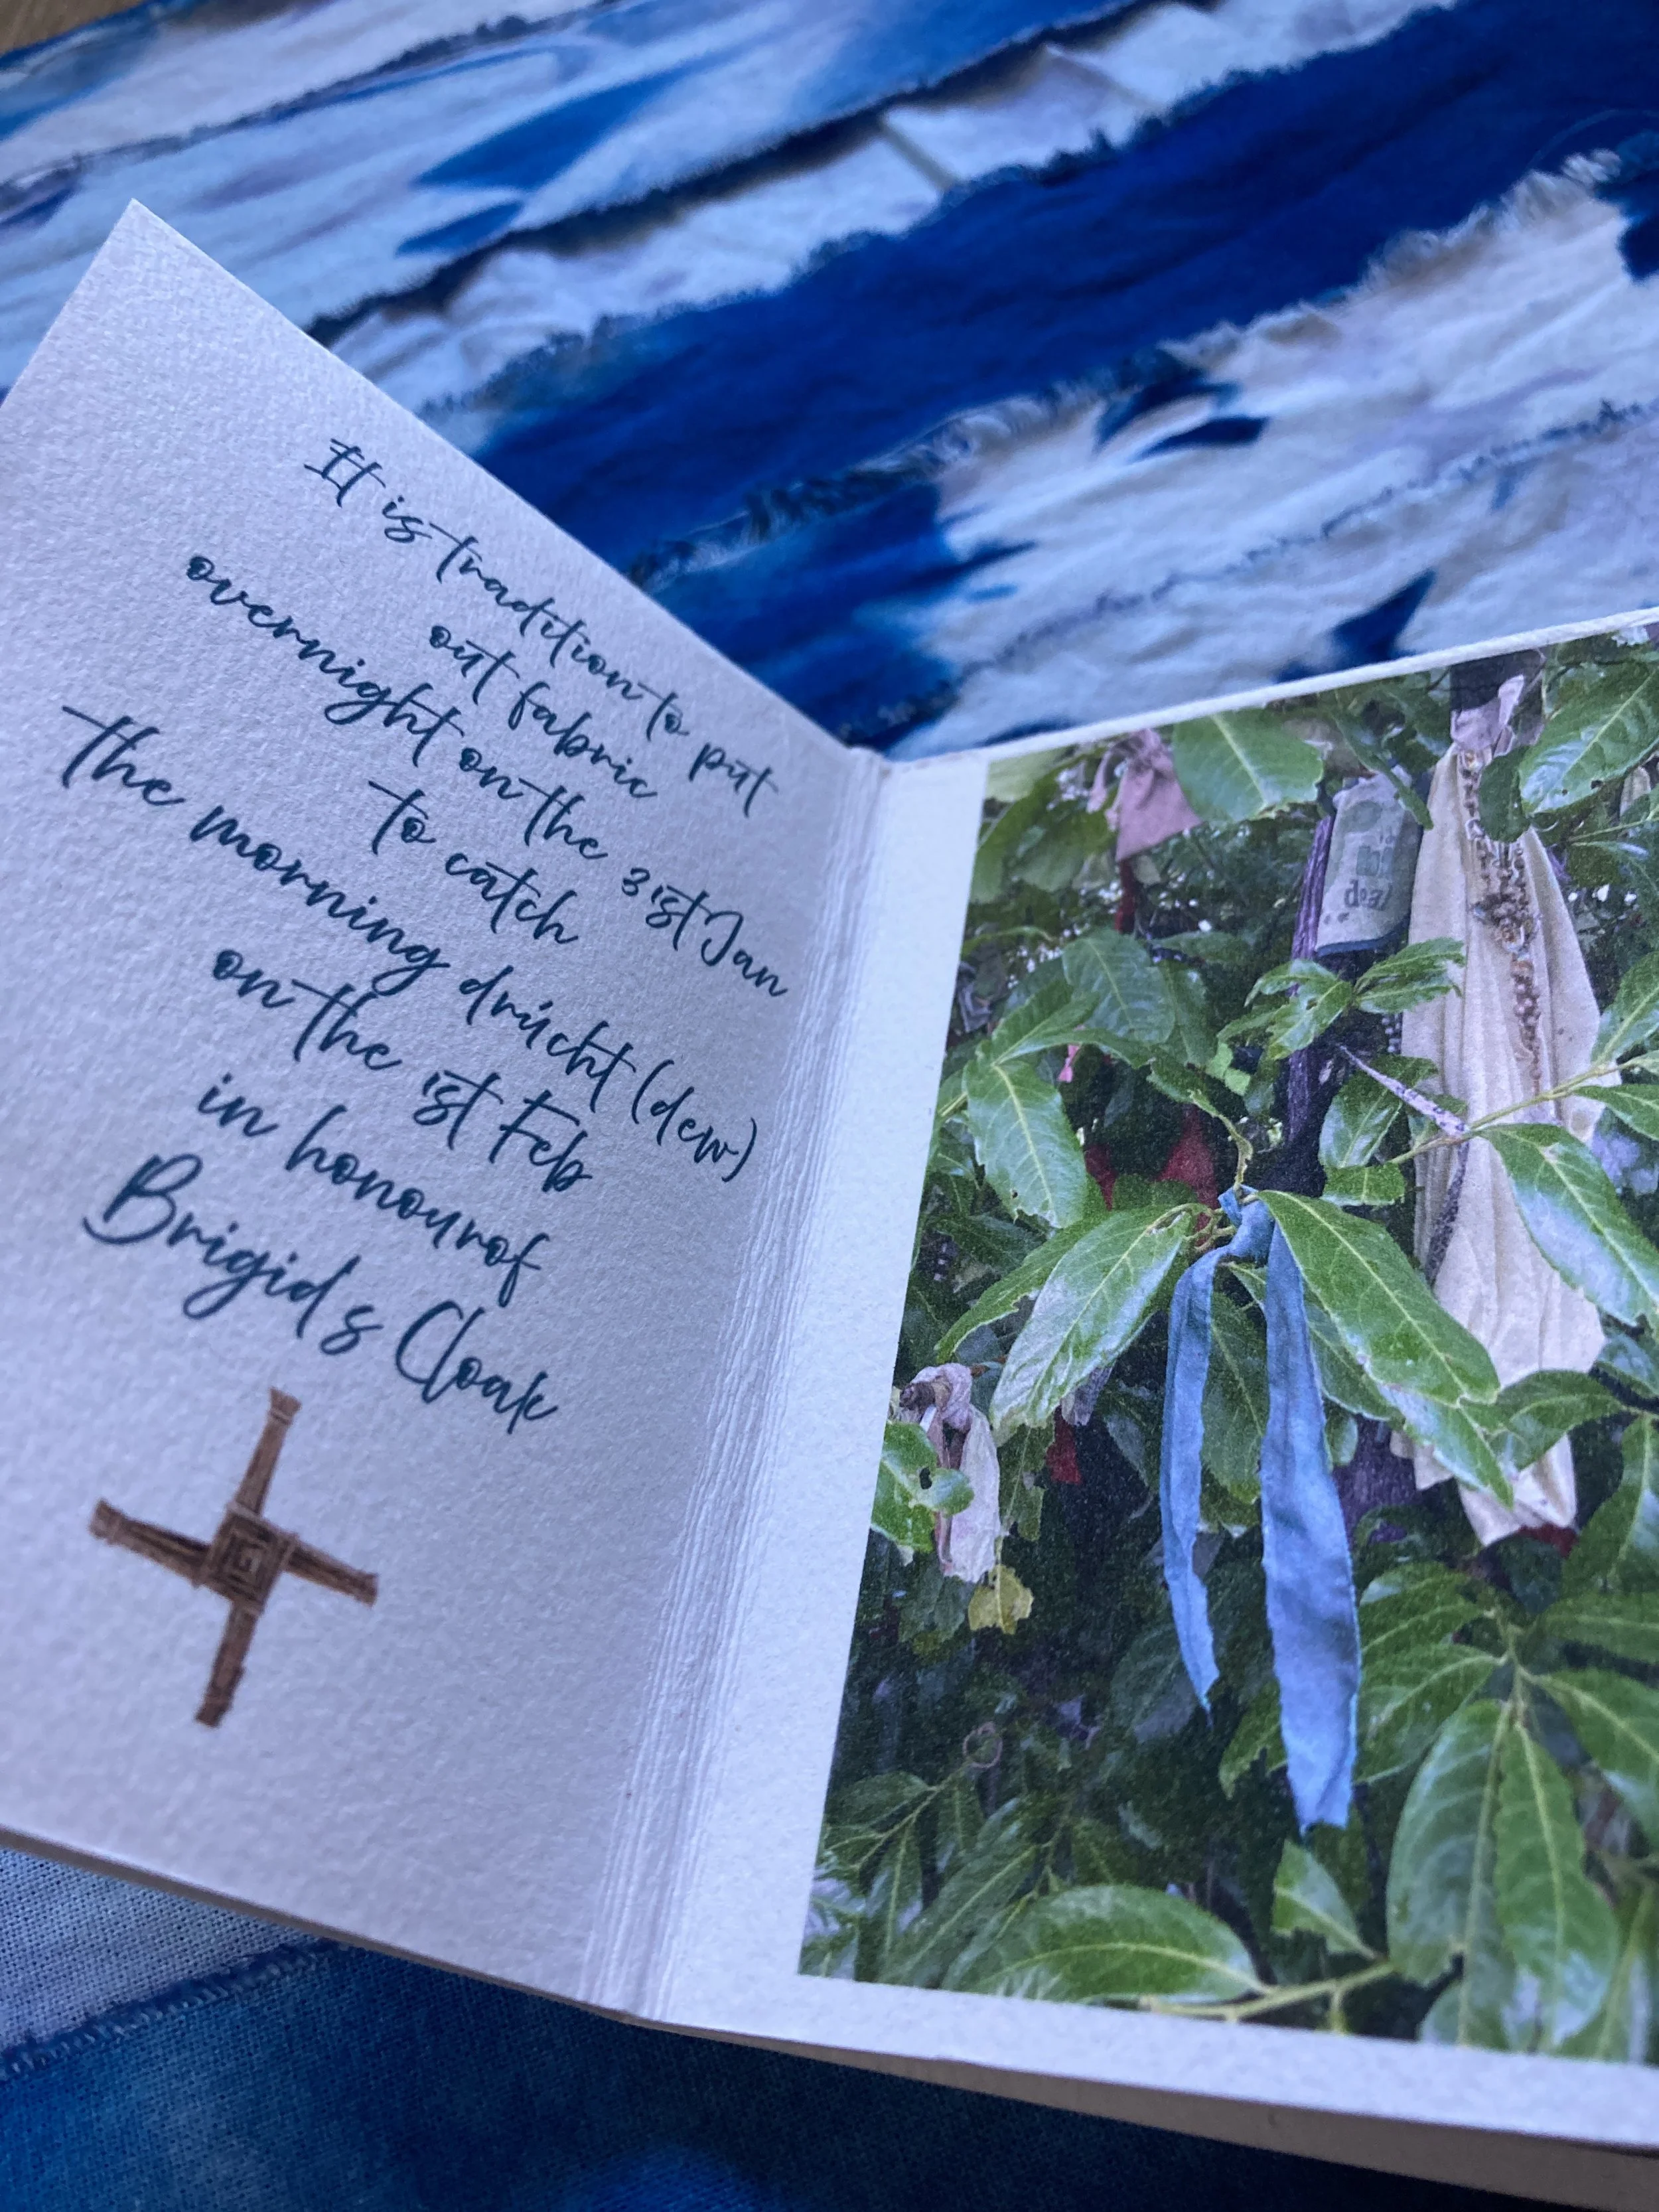 It is tradition to put
out fabric
overnight on the 31st Jan
to catch
the morning drúcht (dew)
on the 1st Feb
in honour of
Brigid's Cloak